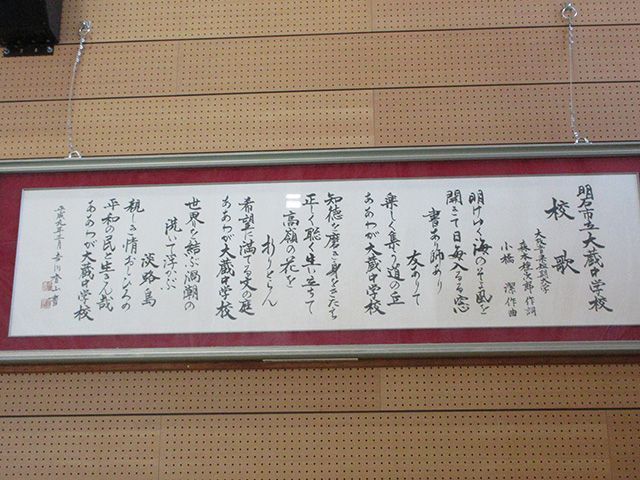 明石市立大蔵中学校
校歌
作詞
小橋 潔 作曲
明けゆく海のそよ風を
開きて日毎入るる窓
書あり師あり
友ありて
楽しく集う道の丘
ああわが大蔵中学校
知徳を磨き身をきたち
正しく聡く生い立ちて
高嶺の花を
折りとらん
希望に満つる文の庭
ああわが大蔵中学校
世界を結ぶ渦潮の
洗いて浮かぶ
淡路島
親しき情おしひろめ
平和の民と生きん哉
ああわが大蔵中学校
平成九年三月
書